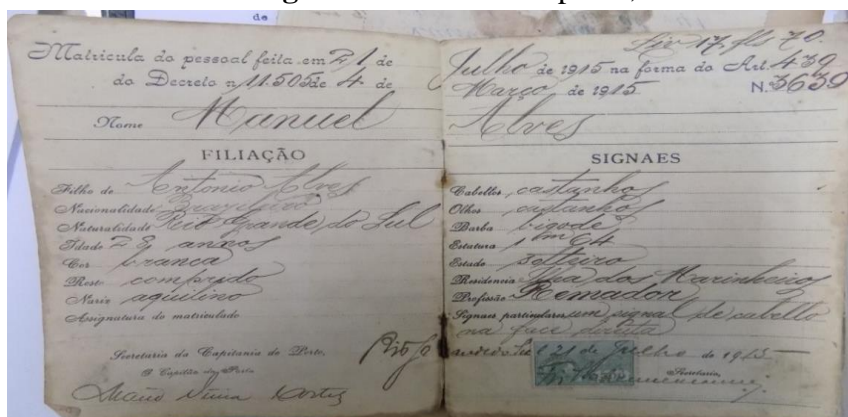 de
Matricula do pessoal feita em 21 de
do Decreto n. 11.505 de 4 de
Nome Manuel
FILIAÇÃO
Filho de Antonio Alves
Nacionalidade Brazileiro
Naturalidade Rio Grande do Sul
Idade 28 annos
Cor branca
Rosto comprido
Nariz aquilino
Assignatura do matriculado
Secretaria da Capitania do Porto,
O Capitão do Porto
Rio G
Liv 17. fls 70.
Julho de 1915 na forma do Art. 439
Março de 1915 N. 3639
Alves
SIGNAES
Cabellos castanhos
Olhos castanhos
Barba bigode
Estatura 1m64
Estado solteiro
Residencia Ilha dos Marinheiros
Profissão Remador
Signaes particulares um signal de cabello
na face direita
21 de Julho de 1915
Secretario,